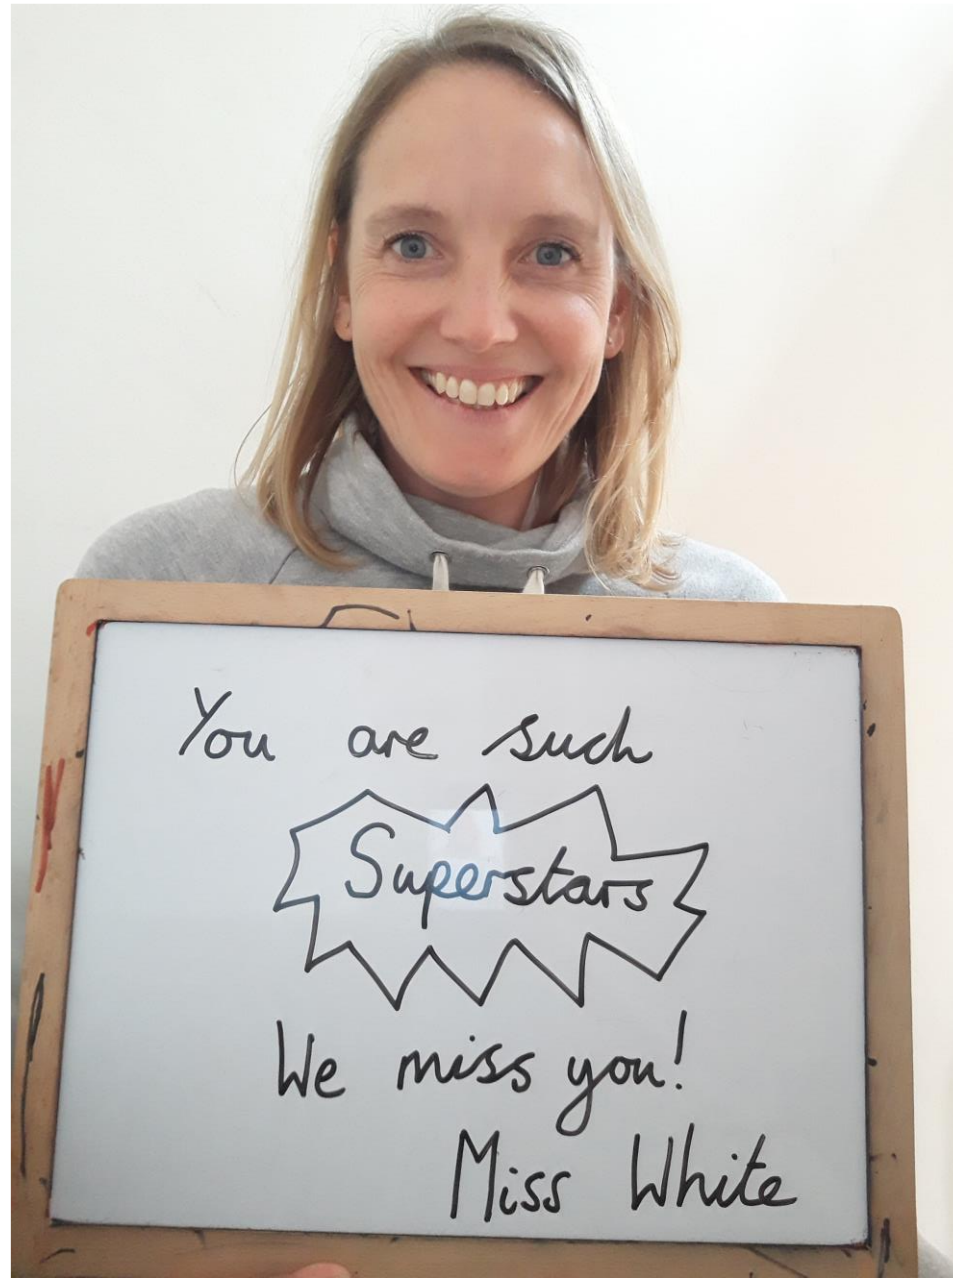 You are such
Superstars
We miss you!
Miss White